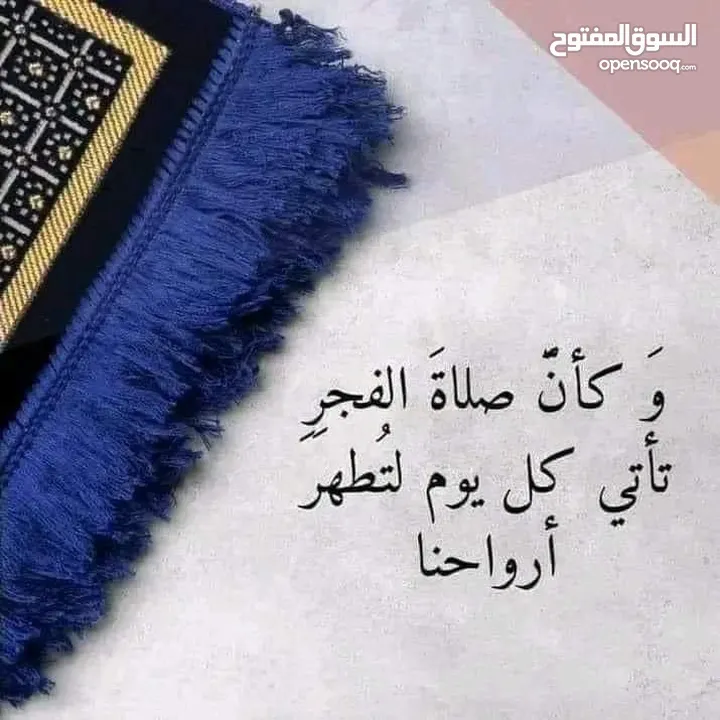 السوق المفتوح
opensooq.com
وَ كأنّ صلاةَ الفجرِِ
تأتي كل يوم لتُطهر
أرواحنا